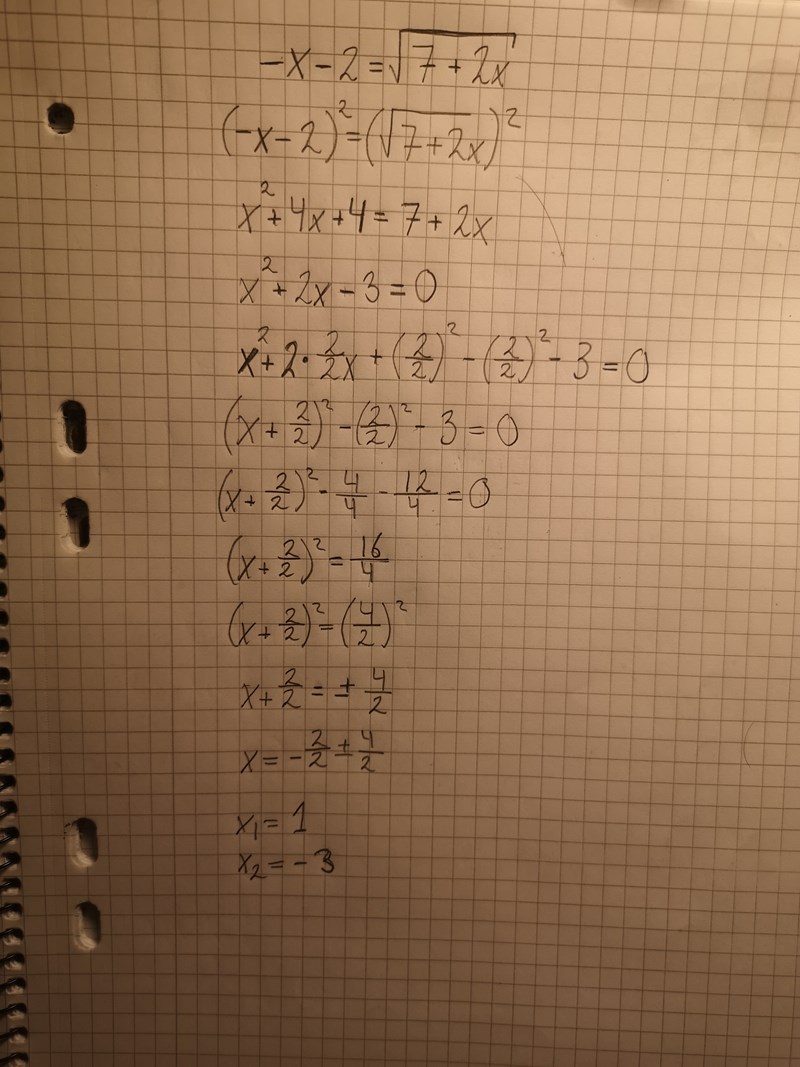 -x-2=√(7+2x)
(-x-2)²=(√(7+2x))²
x²+4x+4=7+2x
x²+2x-3=0
x²+2·2/2x+(2/2)²-(2/2)²-3=0
(x+2/2)²-(2/2)²-3=0
(x+2/2)²-4/4-12/4=0
(x+2/2)²=16/4
(x+2/2)²=(4/2)²
x+2/2=±4/2
x=-2/2±4/2
x₁=1
x₂=-3